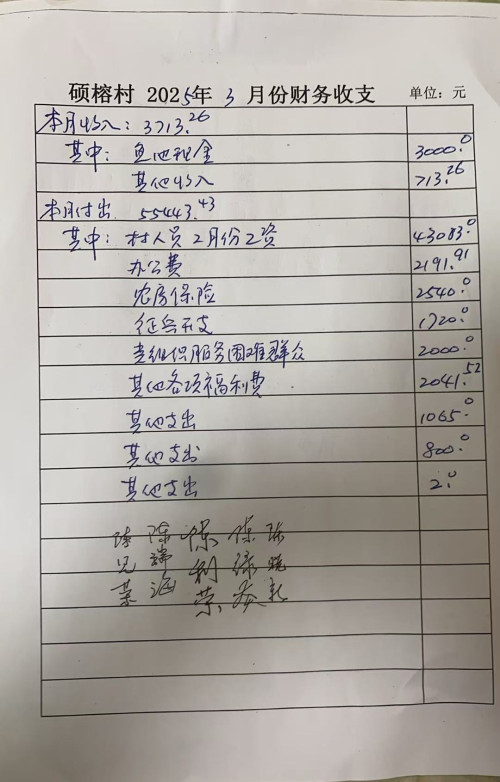 硕榕村 2025年 3 月份财务收支 单位：元
本月收入：3713.26
其中：鱼池租金 3000.0
其他收入 713.26
本月付出 55443.43
其中：村人员2月份工资 43083.0
办公费 2191.91
农房保险 2540.0
征兵开支 1720.0
党组织服务困难群众 2000.0
其他各项福利费 2041.52
其他支出 1065.0
其他支出 800.0
其他支出 2.0